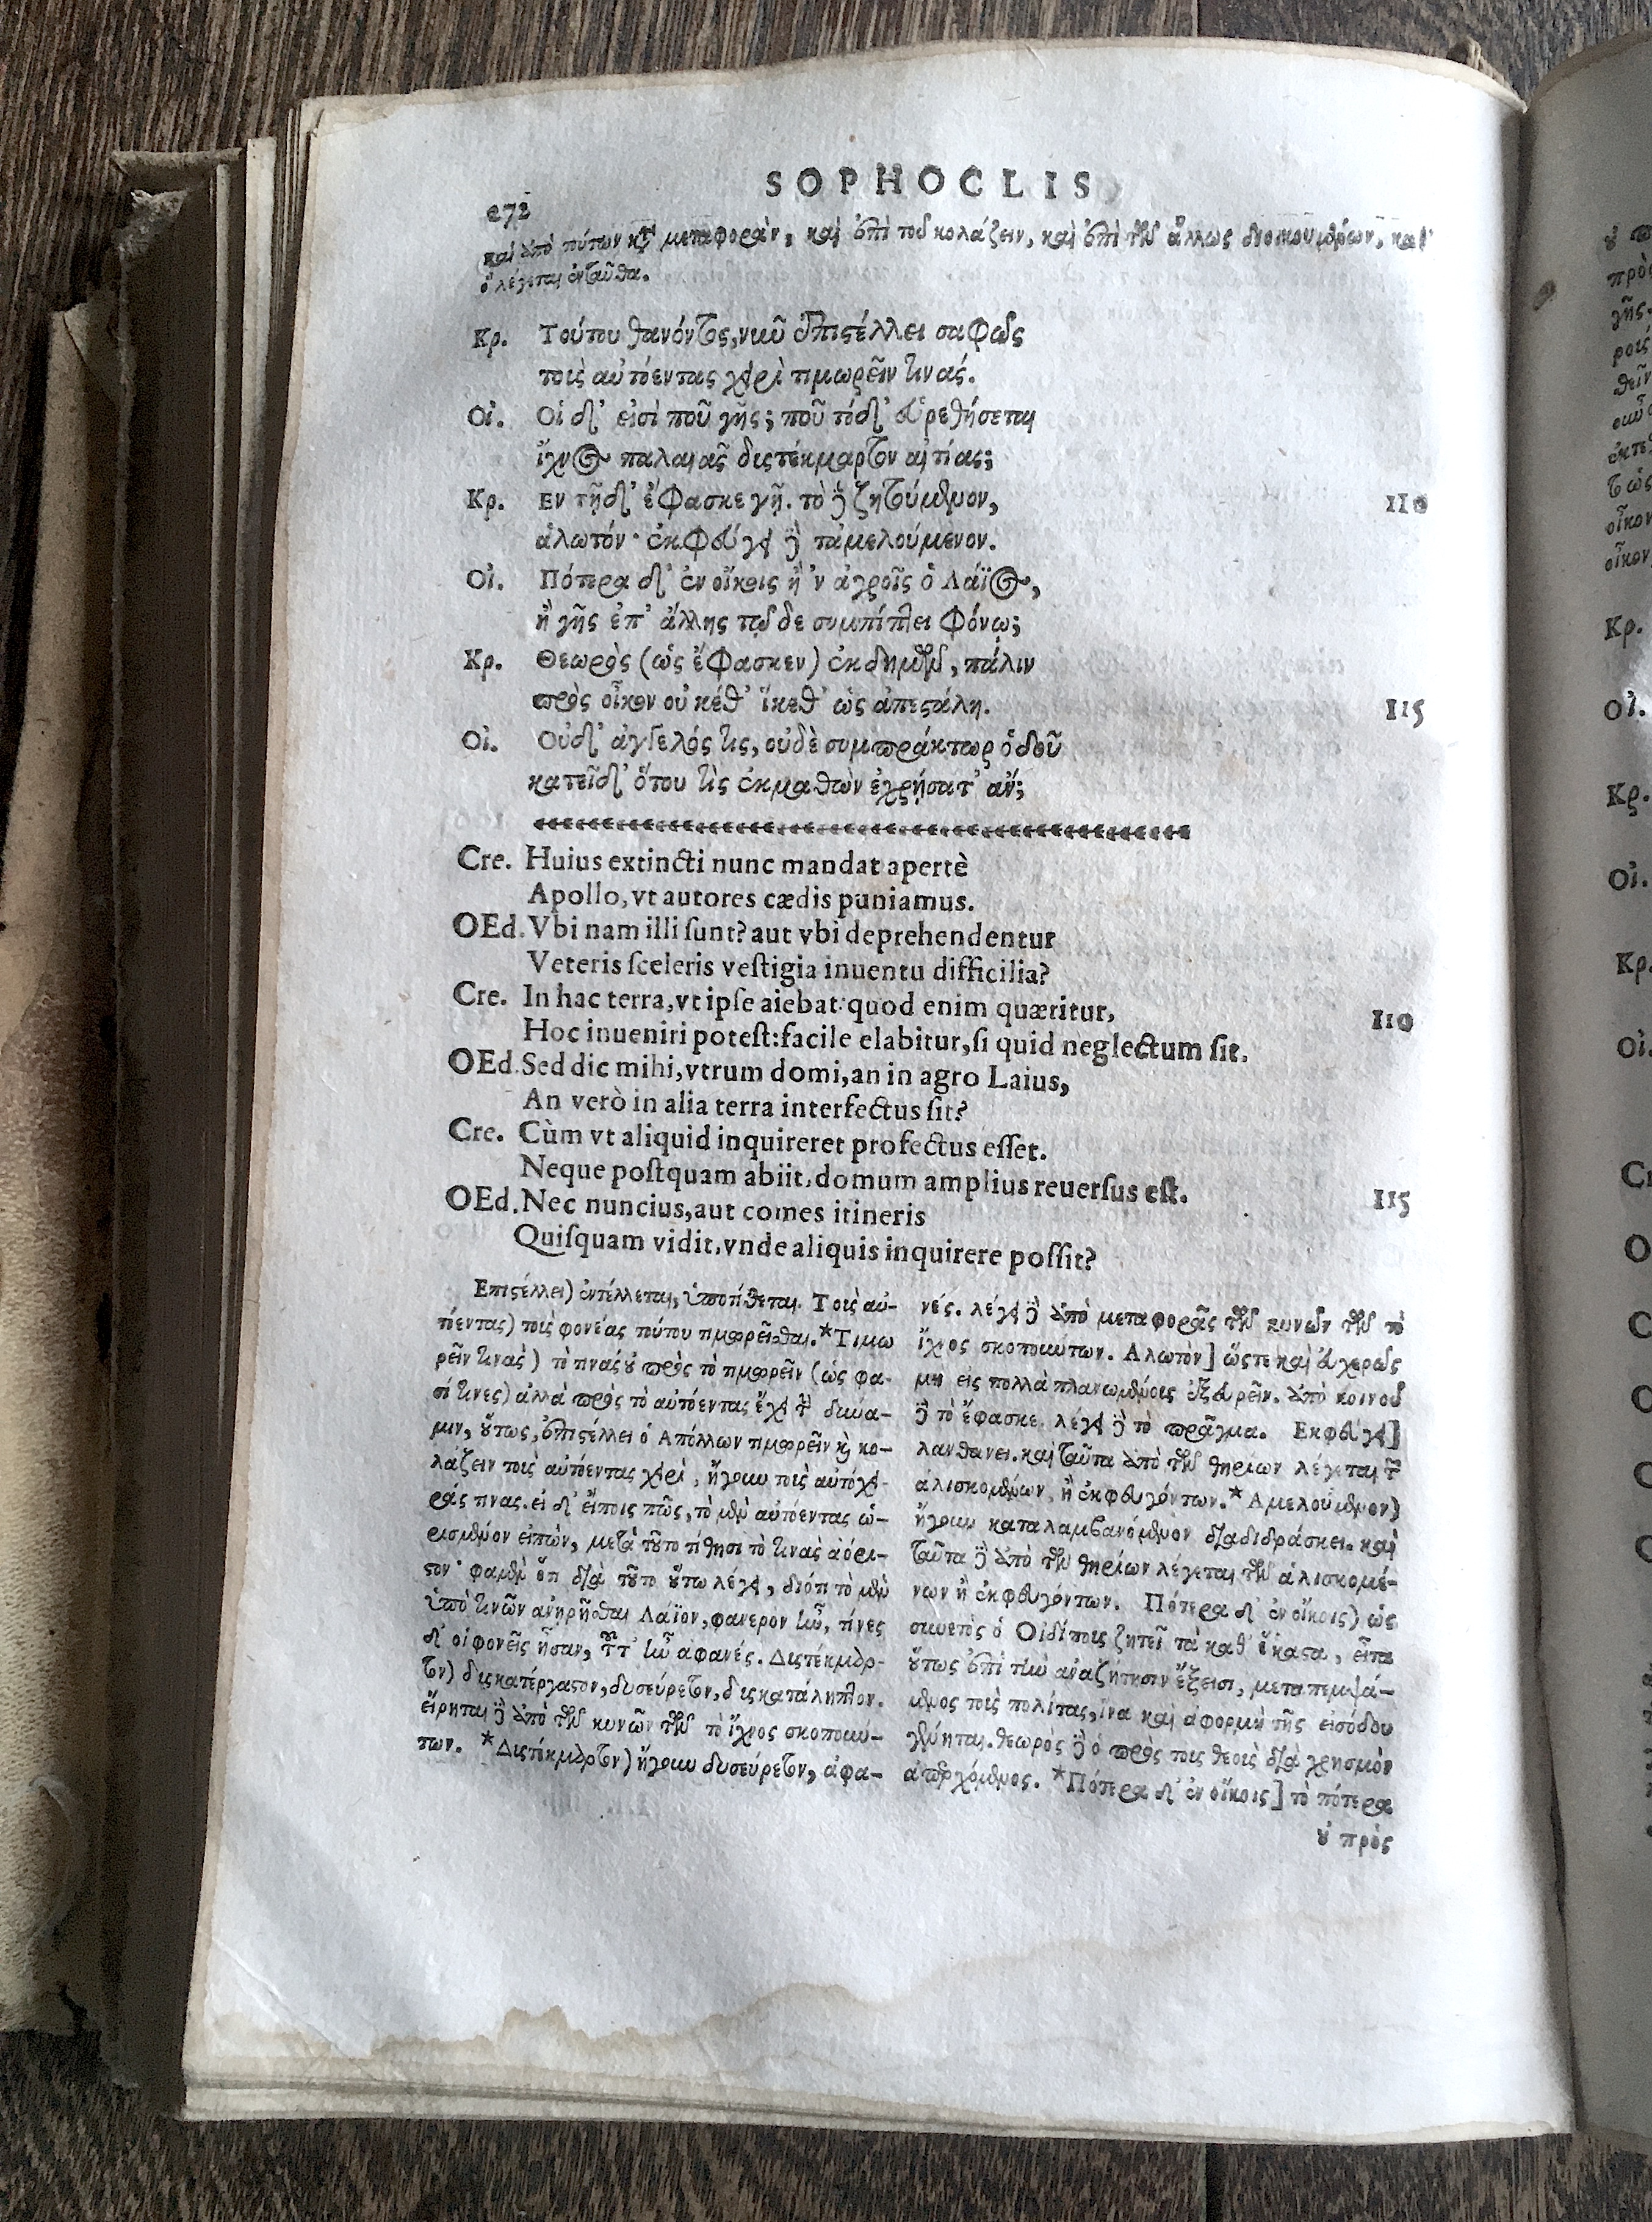 SOPHOCLIS
272
καὶ ἀπὸ τούτων κτ̃ μεταφορὰν, καὶ ἐπὶ τοῦ κολάζειν, καὶ ἐπὶ τῶν ἄλλως
ὃ λέγεται ἐνταῦθα.
Κρ. Τούτου θανόντος, νῦν ἐπιστέλλει σαφῶς
τοὺς αὐτοέντας χειρὶ τιμωρεῖν τινάς.
Οἰ. Οἱ δ' εἰσὶ ποῦ γῆς; ποῦ τόδ' εὑρεθήσεται
ἴχνος παλαιᾶς δυστέκμαρτον αἰτίας;
Κρ. Εν τῇδ' ἔφασκε γῇ. τὸ δὲ ζητούμενον, 110
ἁλωτόν· ἐκφεύγει δὲ τἀμελούμενον.
Οἰ. Πότερα δ' ἐν οἴκοις ἢ 'ν ἀγροῖς ὁ Λάϊος,
ἢ γῆς ἐπ' ἄλλης τῷδε συμπίπτει φόνῳ;
Κρ. Θεωρὸς (ὡς ἔφασκεν) ἐκδημῶν, πάλιν
πρὸς οἶκον οὐκέθ' ἵκεθ' ὡς ἀπεστάλη. 115
Οἰ. Οὐδ' ἄγγελός τις, οὐδὲ συμπράκτωρ ὁδοῦ
κατεῖδ' ὅτου τὶς ἐκμαθὼν ἐχρήσατ' ἄν;
Cre. Huius extincti nunc mandat apertè
Apollo, vt autores cædis puniamus.
OEd. Vbi nam illi ſunt? aut vbi deprehendentur
Veteris ſceleris veſtigia inuentu difficilia?
Cre. In hac terra, vt ipſe aiebat: quod enim quæritur, 110
Hoc inueniri poteſt: facile elabitur, ſi quid neglectum ſit.
OEd. Sed dic mihi, vtrum domi, an in agro Laius,
An verò in alia terra interfectus ſit?
Cre. Cùm vt aliquid inquireret profectus eſſet.
Neque poſtquam abiit, domum amplius reuerſus eſt. 115
OEd. Nec nuncius, aut comes itineris
Quiſquam vidit, vnde aliquis inquirere poſſit?
Επιστέλλει) ἐντέλλεται, ὑποτίθεται. Τοὺς αὐ-
τοέντας) τοὺς φονέας τούτου τιμωρεῖσθαι. *Τιμω
ρεῖν τινὰς) τὸ τινας οὐ πρὸς τὸ τιμωρεῖν (ὡς φα-
σί τινες) ἀλλὰ πρὸς τὸ αὐτοέντας ἔχει τὴν δύνα-
μιν, οὕτως, ἐπιστέλλει ὁ Απόλλων τιμωρεῖν κὶ κο-
λάζειν τοὺς αὐτοέντας χειρὶ, ἤγουν τοὺς αὐτόχει-
ράς τινας. εἰ δ' εἴποις πῶς, τὸ μὲν αὐτοέντας ὡ-
ρισμένον εἰπὼν, μετὰ τοῦτο τίθησι τὸ τινὰς αόρι-
στον· φαμὲν ὅτι διὰ τοῦτο οὕτω λέγει, διότι τὸ μὲν
ὑπὸ τινῶν ἀνῃρῆσθαι Λάϊον, φανερὸν ἦν, τίνες
δ' οἱ φονεῖς ἦσαν, τοῦτ' ἦν ἀφανές. Δυστέκμαρ-
τον) δυσκατέργαστον, δυσεύρετον, δυσκατάληπτον.
εἴρηται δὲ ἀπὸ τῶν κυνῶν τῶν τὸ ἴχνος σκοπούν-
των. *Δυστέκμαρτον) ἤγουν δυσεύρετον, ἀφα-
νές. λέγει δὲ ἀπὸ μεταφορᾶς τῶν κυνῶν τῶν τὸ
ἴχνος σκοπούντων. Αλωτὸν] ὥστε καὶ εὐχερῶς
μὴ εἰς πολλὰ πλανωμένους ἐξευρεῖν. ἀπὸ κοινοῦ
δὲ τὸ ἔφασκε. λέγει δὲ τὸ πρᾶγμα. Εκφεύγει]
λανθάνει. καὶ ταῦτα ἀπὸ τῶν θηρίων λέγεται τῶν
ἁλισκομένων, ἢ ἐκφευγόντων. *Αμελούμενον)
ἤγουν καταλαμβανόμενον διαδιδράσκει. καὶ
ταῦτα δὲ ἀπὸ τῶν θηρίων λέγεται τῶν ἁλισκομέ-
νων ἢ ἐκφευγόντων. Πότερα δ' ἐν οἴκοις) ὡς
συνετὸς ὁ Οἰδίπους ζητεῖ τὰ καθ' ἕκαστα, εἶτα
οὕτως ἐπὶ τὴν ἀναζήτησιν ἔξεισι, μεταπεμψά-
μενος τοὺς πολίτας, ἵνα καὶ ἀφορμὴ τῆς εἰσόδου
γένηται. θεωρὸς δὲ ὁ πρὸς τοὺς θεοὺς διὰ χρησμὸν
ἀπερχόμενος. *Πότερα δ' ἐν οἴκοις] τὸ πότερα
οὐ πρὸς